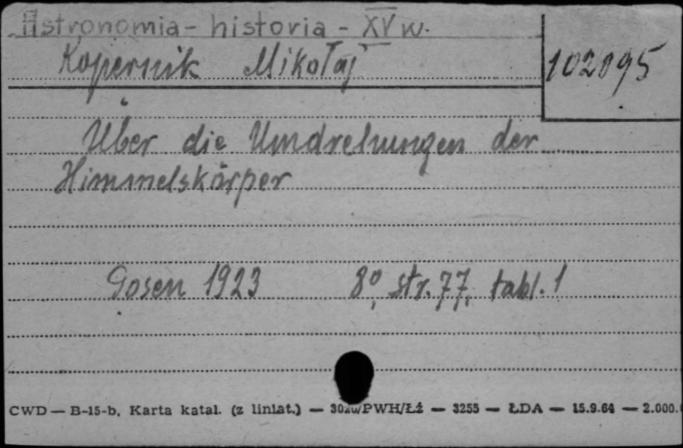 Astronomia - historia - XV w.
Kopernik Mikołaj
102895
Über die Umdrehungen der
Himmelskörper
Posen 1923 8º, str. 77, tabl. 1
CWD — B-15-b, Karta katal. (z liniat.) — PWH/Łź — 3255 — ŁDA — 15.9.64 — 2.000.